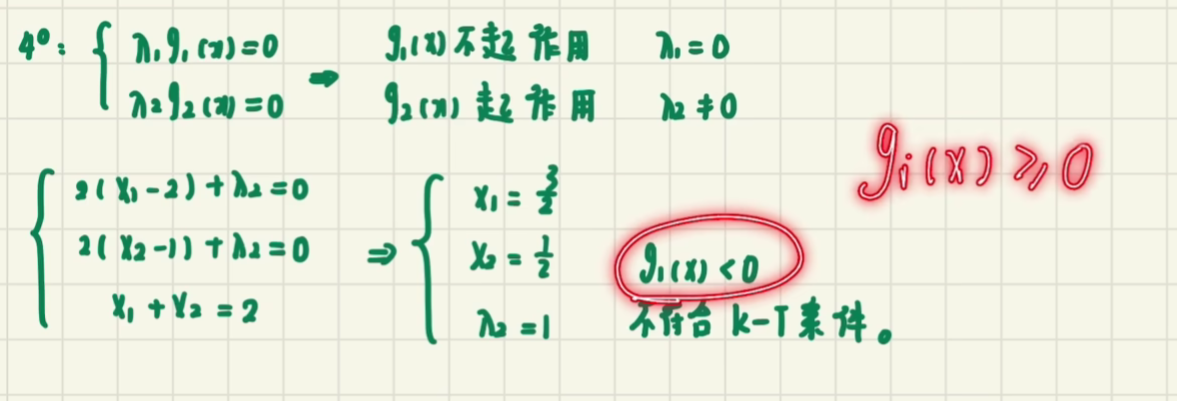 4°: { λ₁g₁(x)=0 ⇒ g₁(x)不起作用 λ₁=0
λ₂g₂(x)=0 g₂(x)起作用 λ₂≠0
gᵢ(x)≥0
{ 2(x₁-2)+λ₂=0
2(x₂-1)+λ₂=0
x₁+x₂=2
⇒ { x₁=3/2
x₂=1/2
λ₂=1
g₁(x)<0
不符合k-T条件。